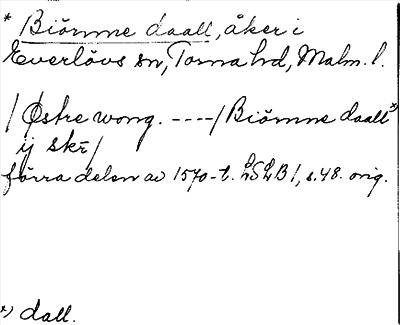 * Biömme daall, åker i
Everlövs sn, Torna hd, Malm. l.
/ Østre wong. ----/ Biömme daall *)
ij skr̄ /
förra delen av 1570-t. LSLB 1, s. 48. orig.
*) dall.